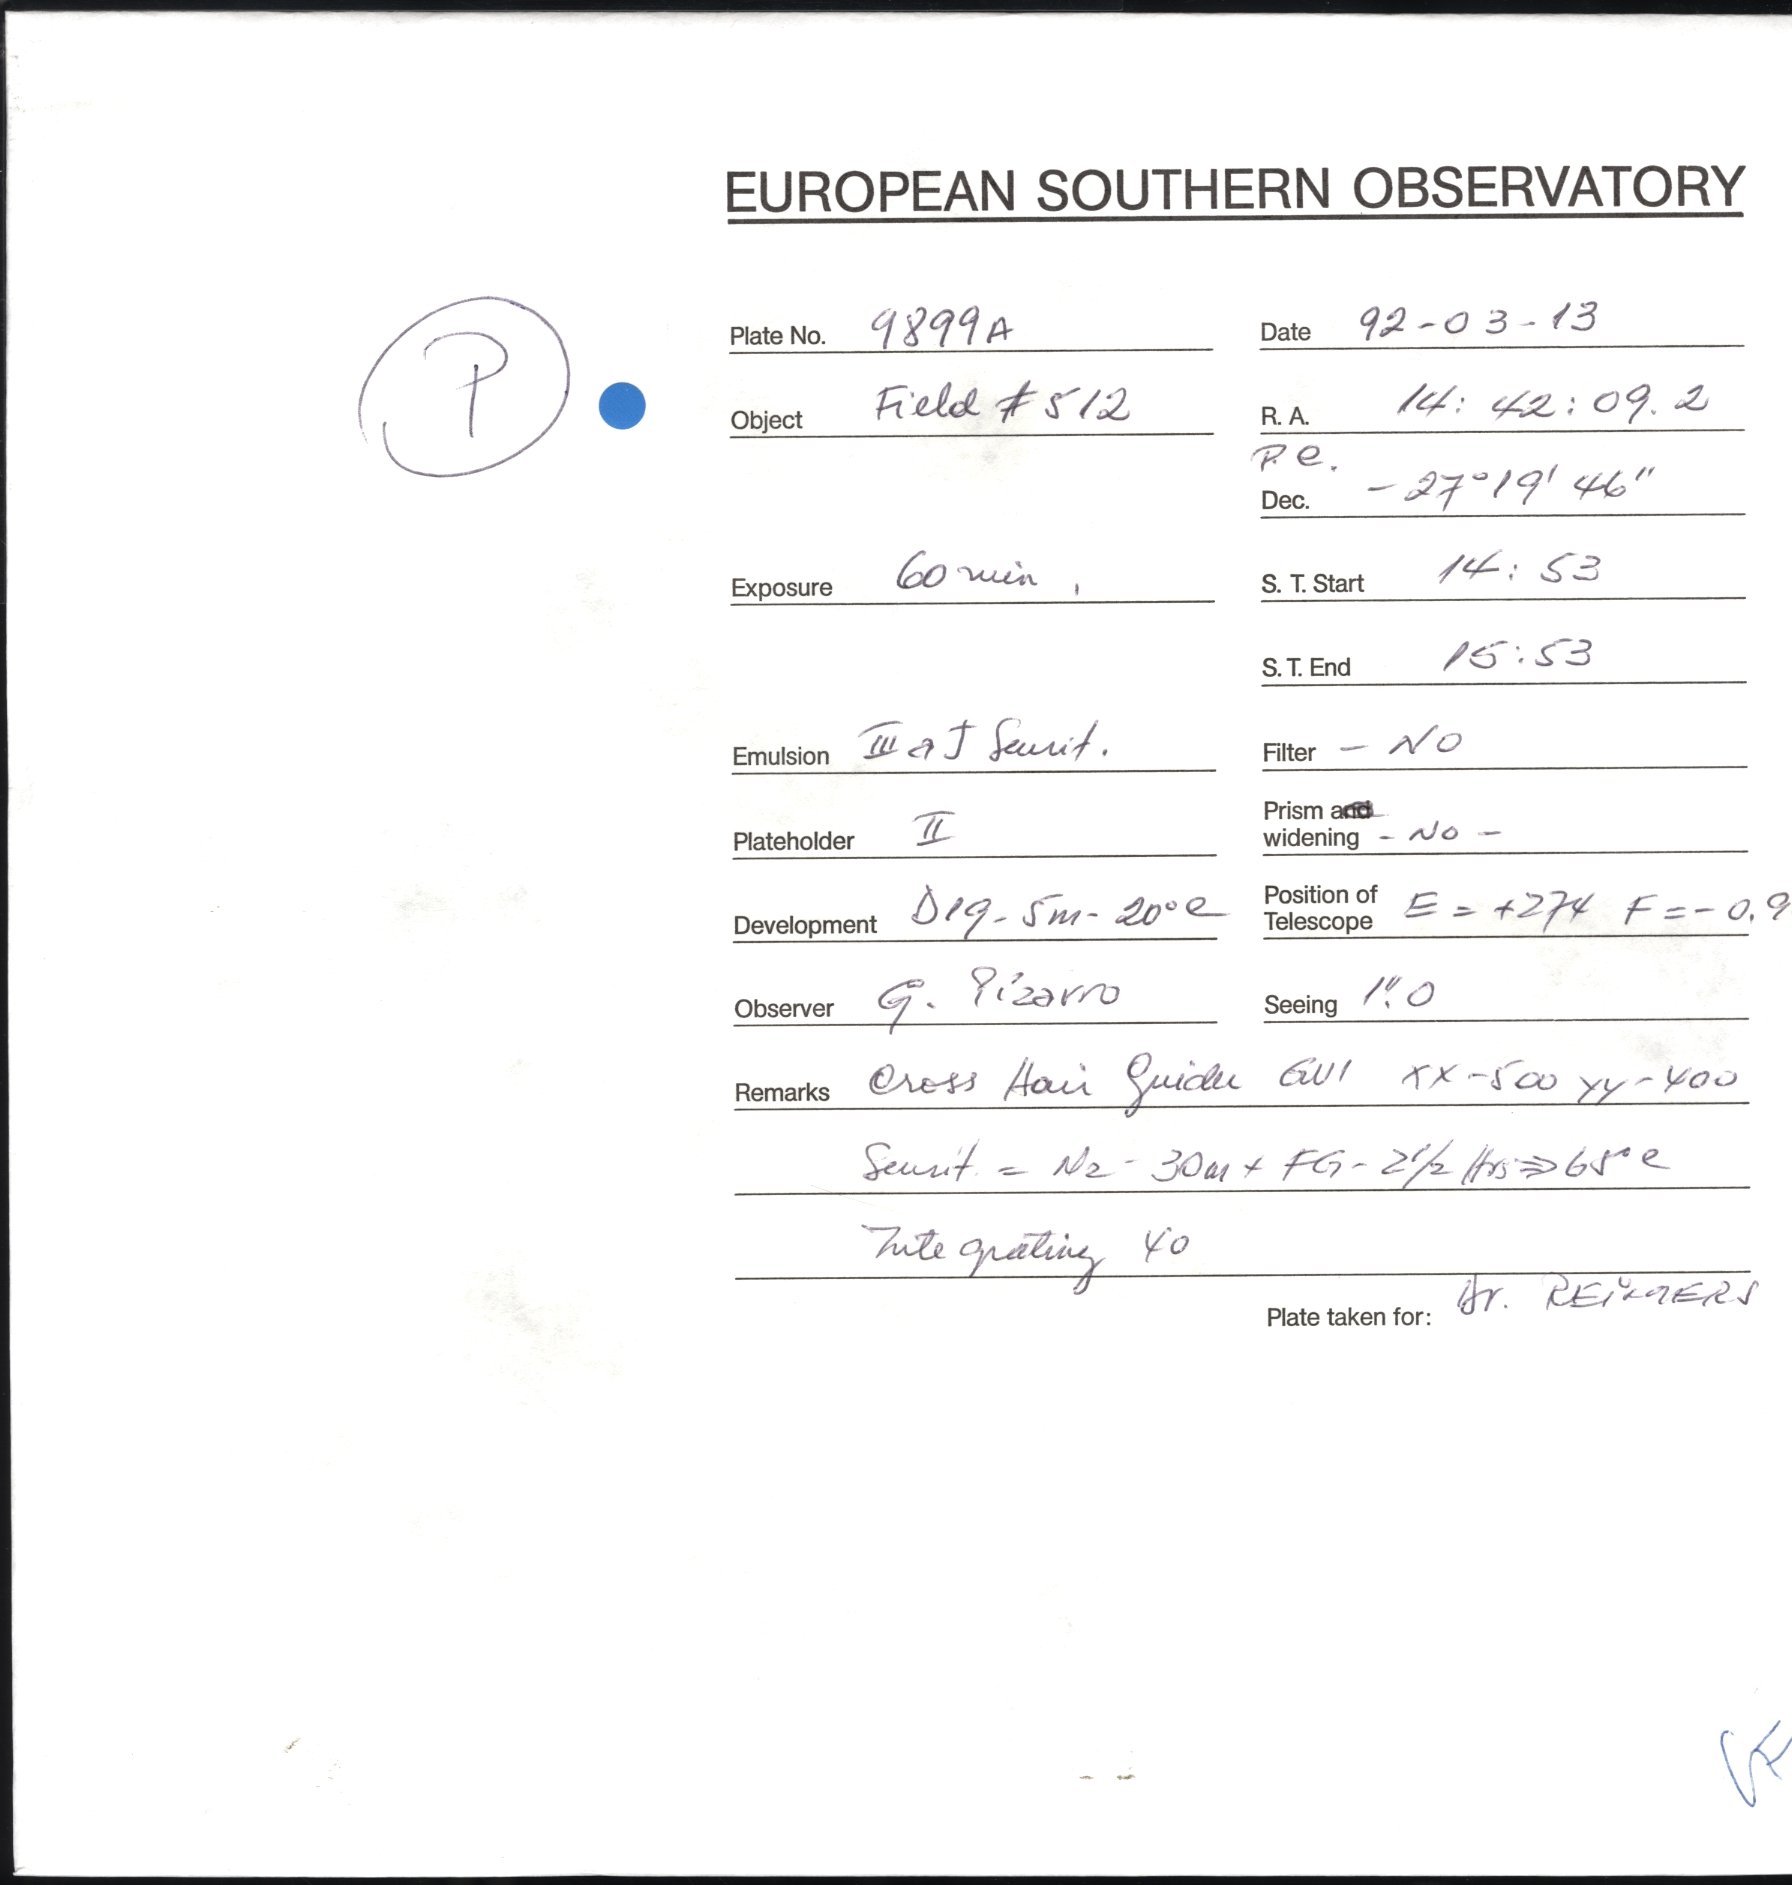 EUROPEAN SOUTHERN OBSERVATORY
P
Plate No. 9899A Date 92-03-13
Object Field # 512 R. A. 14: 42: 09. 2
P.e.
Dec. - 27° 19' 46"
Exposure 60 min S. T. Start 14: 53
S. T. End 15:53
Emulsion III a J Sensit. Filter - NO
Plateholder II Prism and widening - NO -
Development D19- 5m- 20°C Position of Telescope E = +274 F = - 0.9
Observer G. Pizarro Seeing 1".0
Remarks Cross Hair Guider XX-500 YY-400
Sensit. = N2 - 30m + FG - 2 1/2 Hrs => 65°C
Integrating 40
Plate taken for: Dr. REIMERS